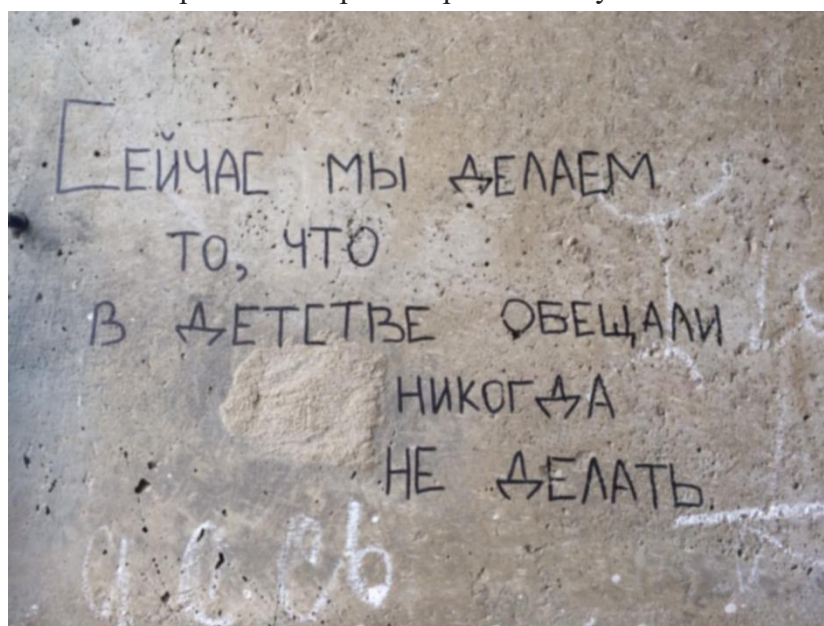 СЕЙЧАС МЫ ДЕЛАЕМ
ТО, ЧТО
В ДЕТСТВЕ ОБЕЩАЛИ
НИКОГДА
НЕ ДЕЛАТЬ